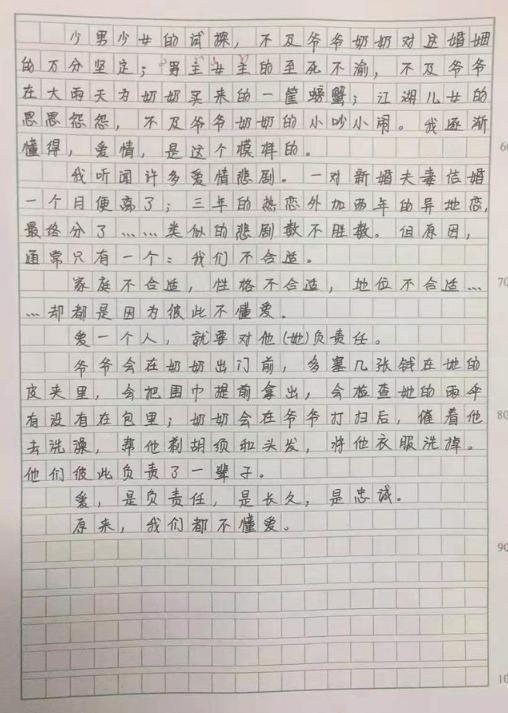 少男少女的试探，不及爷爷奶奶对这婚姻
的万分坚定；男主女主的至死不渝，不及爷爷
在大雨天为奶奶买来的一筐螃蟹；江湖儿女的
恩恩怨怨，不及爷爷奶奶的小吵小闹。我逐渐
懂得，爱情，是这个模样的。
我听闻许多爱情悲剧。一对新婚夫妻结婚
一个月便离了；三年的热恋外加两年的异地恋，
最终分了……类似的悲剧数不胜数。但原因，
通常只有一个：我们不合适。
家庭不合适，性格不合适，地位不合适…
…却都是因为彼此不懂爱。
爱一个人，就要对他(她)负责任。
爷爷会在奶奶出门前，多塞几张钱在她的
皮夹里，会把围巾提前拿出，会检查她的雨伞
有没有在包里；奶奶会在爷爷打扫后，催着他
去洗澡，帮他剃胡须和头发，将他衣服洗掉。
他们彼此负责了一辈子。
爱，是负责任，是长久，是忠诚。
原来，我们都不懂爱。
60
70
80
90
10